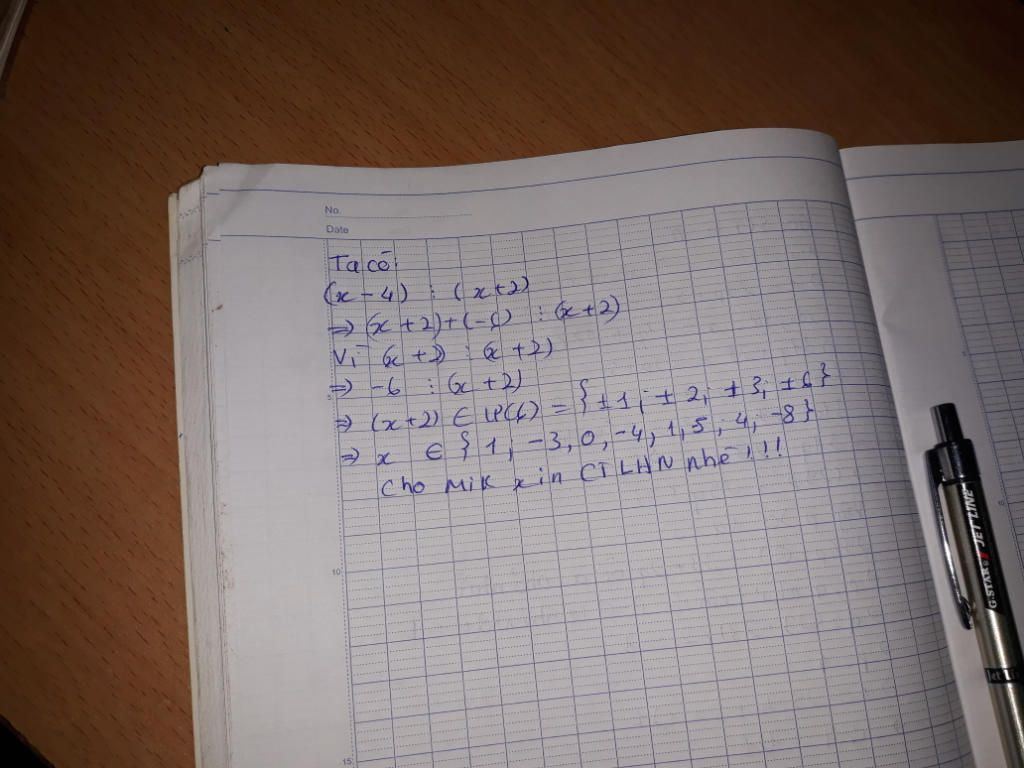 No.
Date
Ta có:
(x - 4) ⋮ (x+2)
=> (x+2)+(-6) ⋮ (x+2)
Vì (x+2) ⋮ (x+2)
=> -6 ⋮ (x+2)
=> (x+2) ∈ Ư(6) = {±1; ±2; ±3; ±6}
=> x ∈ {1, -3, 0, -4, 1, 5, 4, -8}
Cho mik xin CTLHN nhé!!!
5
10
15
G-STAR JET LINE